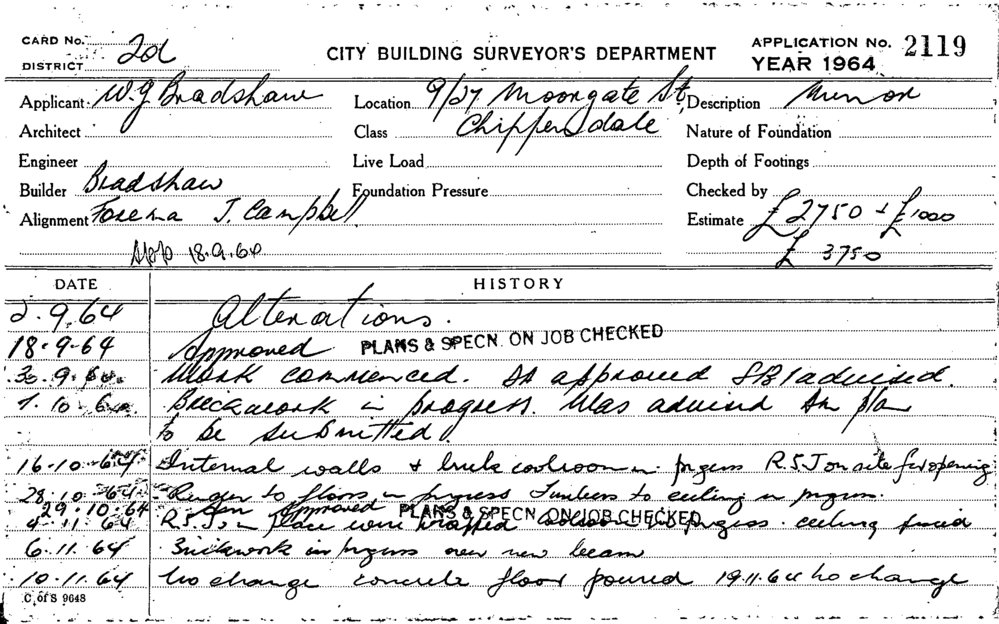 CARD No. 2d
DISTRICT
CITY BUILDING SURVEYOR'S DEPARTMENT
APPLICATION No. 2119
YEAR 1964
Applicant W.J Bradshaw
Location 9/27 Moorgate St,
Description Minor
Architect
Class Chippendale
Nature of Foundation
Engineer
Live Load
Depth of Footings
Builder Bradshaw
Foundation Pressure
Checked by
Alignment J. Campbell
Estimate £2750 + £1000
App 18.9.64
£ 3750
DATE HISTORY
2.9.64 Alterations.
18-9-64 Approved PLANS & SPECN. ON JOB CHECKED
30.9.64 Work commenced. As approved advised.
7.10.64 Brickwork in progress. Was advised Am plan
to be submitted.
16-10-64 Internal walls & brick coolroom in progress R.S.J on site for opening
28.10.64 to floors in progress Timbers to ceiling in progress.
29.10.64 Am Approved PLANS & SPECN. ON JOB CHECKED
4.11.64 R.S.J. in place wire wrapped progress. ceiling fixed
6.11.64 Brickwork in progress over new beam
10.11.64 No change concrete floor poured 19.11.64 No change
C. of S 9648